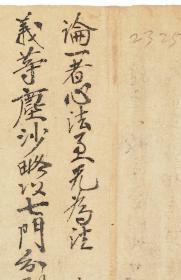 論一者心法至先為法
義等塵沙略以七門分
2325